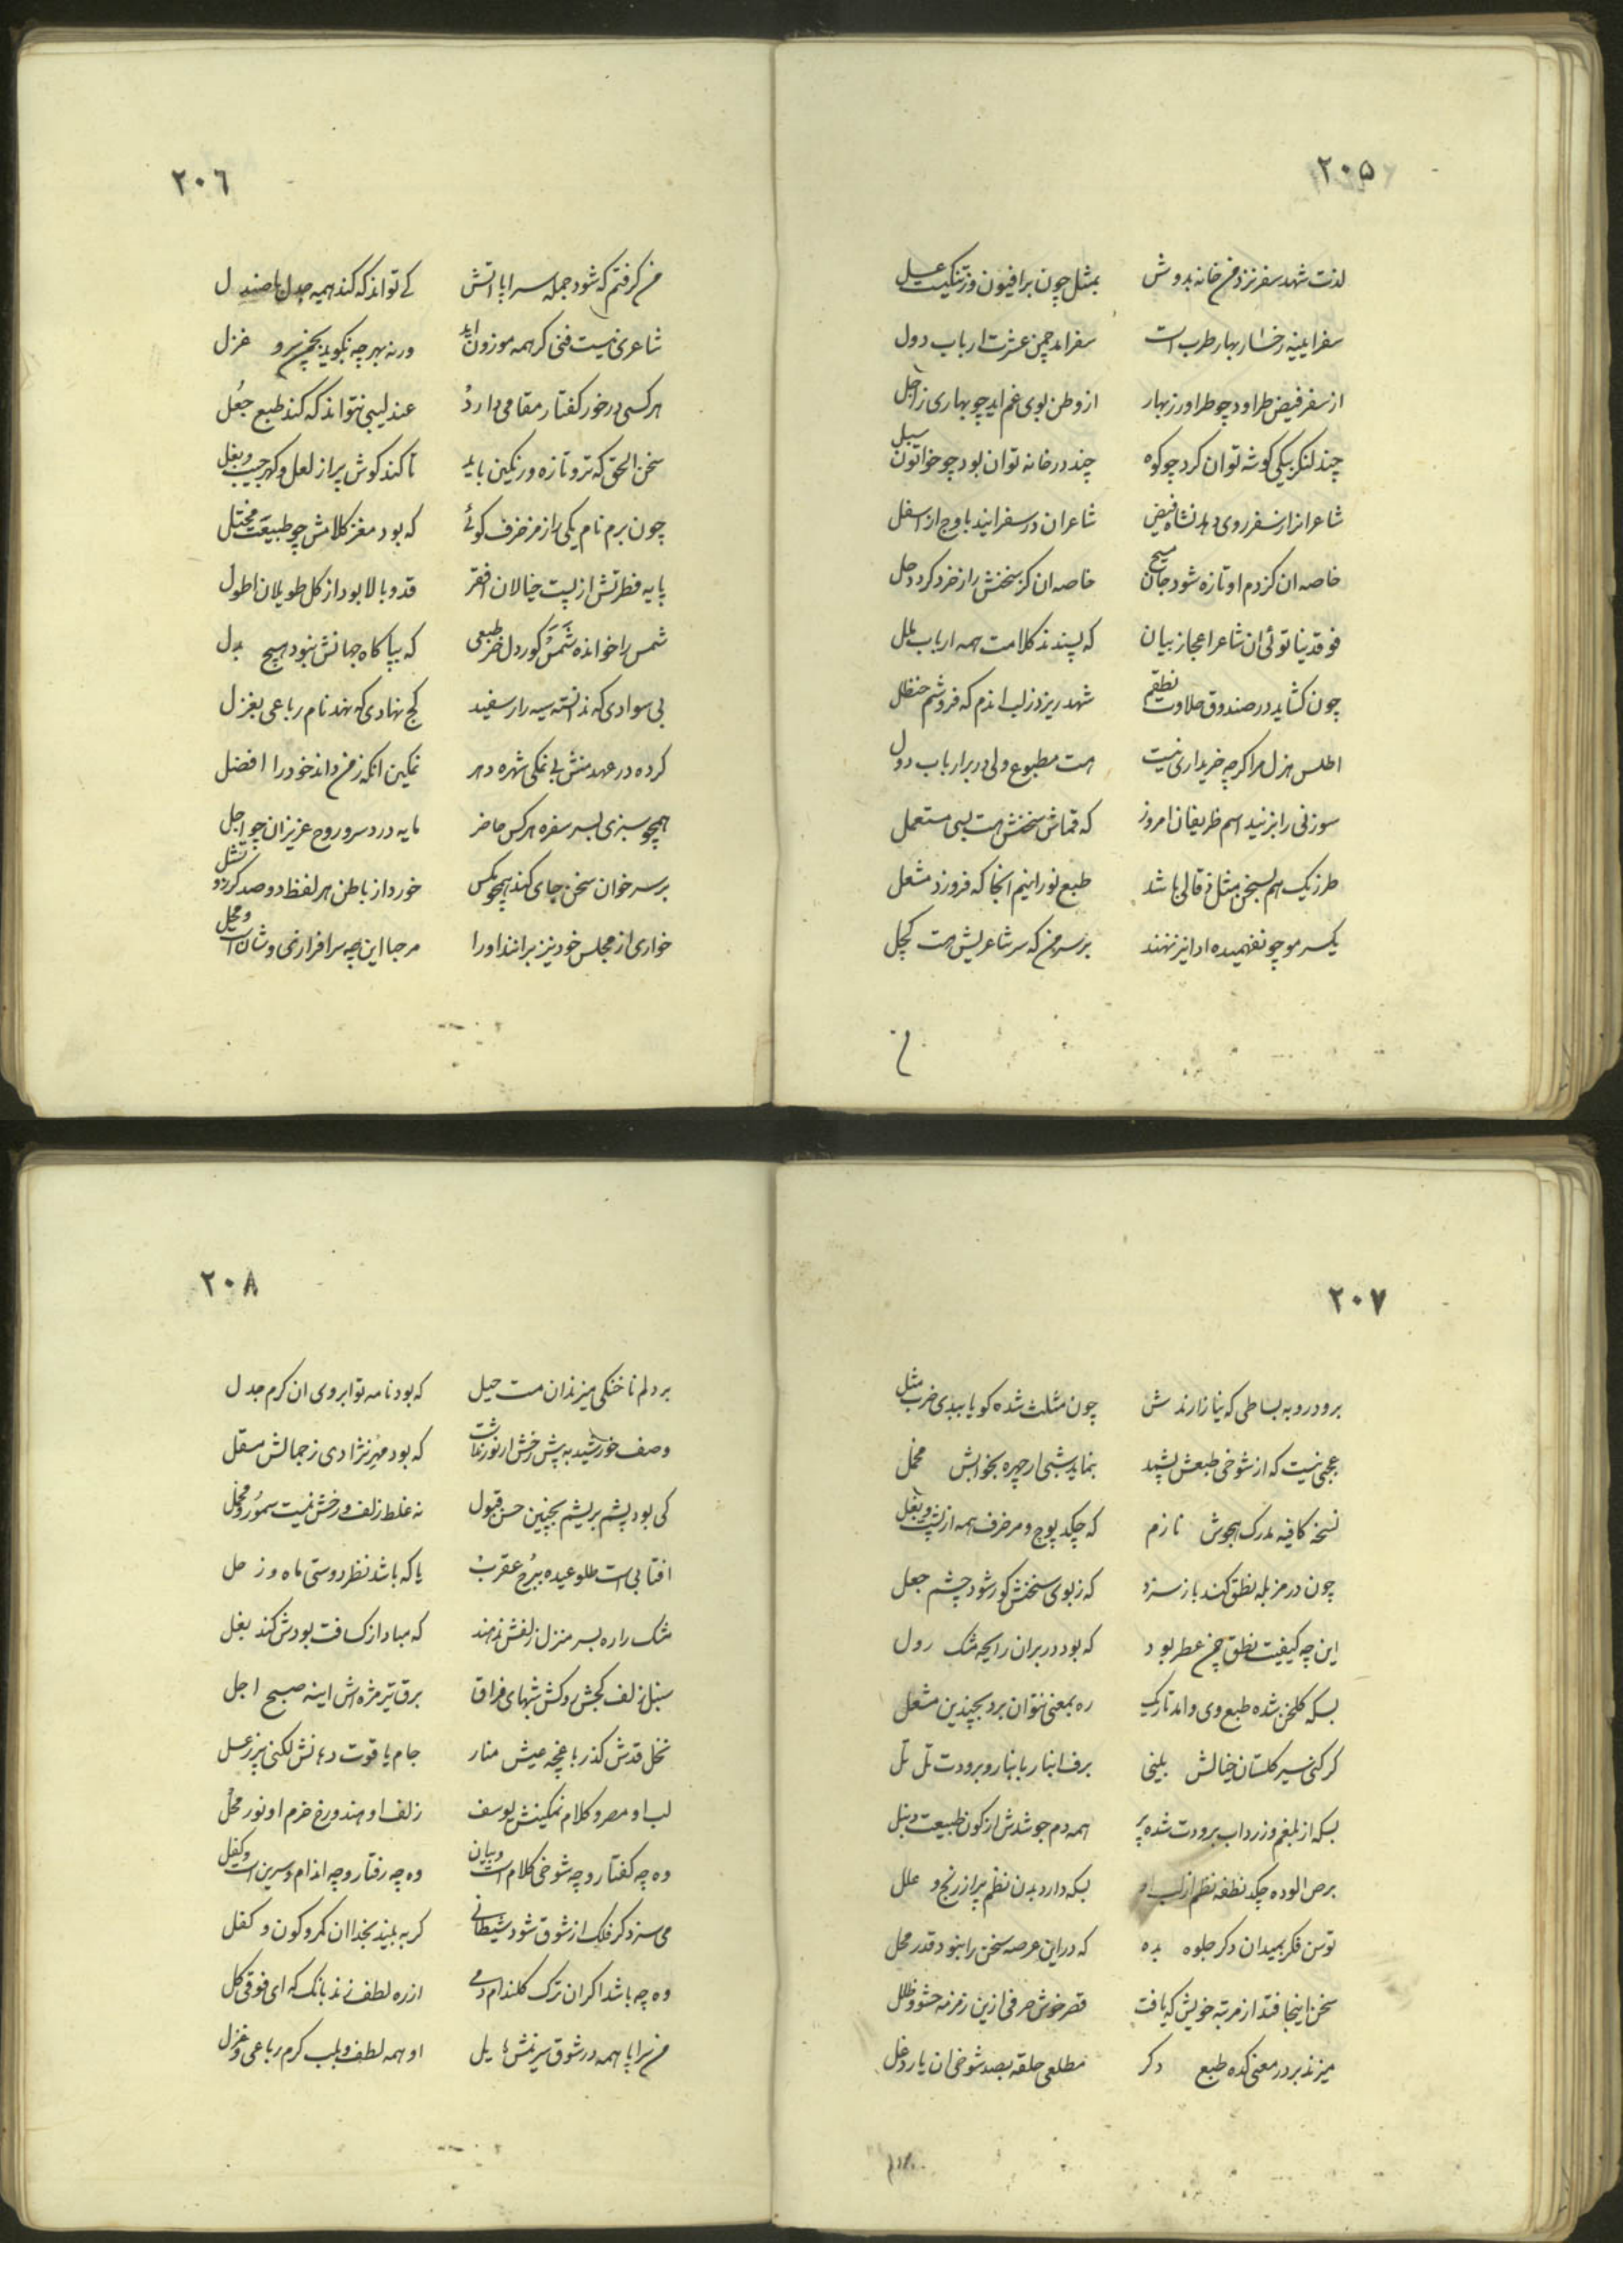 ۲۰۵
لذت شهد سفر نزد من خانه بدوش بمثل چون برافیون وزتنکیت عسل
سفر ایینه رخسار بهار طرب است سفر اید چمن عشرت ارباب دول
از سفر فیض طراود چو طراوز زبهار از وطن بوی غم اید چو بهاری زاجل
چند لنکر بیکی کوشه توان کرد چو کوه چند در خانه توان بود چو خواتون سبیل
شاعرانرا از سفر روی دهد نشاه فیض شاعران در سفر ایند باوج از اسفل
خاصه ان کز دم او تازه شود جان مسیح خاصه ان کز سخنش راز خرد کردد حل
فوقدینا توئی ان شاعر اعجاز بیان که پسندند کلامت همه ارباب ملل
چون کشاید در صندوق حلاوت نطقم شهد ریزد زلب اندم که فروشم حنظل
اطلس هزل مرا کرچه خریداری نیست هست مطبوع ولی در بر ارباب دول
سوزنی را بزنید اسم ظریفان امروز که قماش سخنش هست بسی مستعمل
طرز یک هم بسخن مثل زقالی باشد طبع نورانیم انجا که فروزد مشعل
یکسر مو چو نفهمیده ادا نیز نهند بر سر من که سر شاعریش هست کچل
من
۲۰۶
من کرفتم که شود جمله سراپا اتش کے تواند که کند همیه جدل با صندل
شاعری نیست فنی کر همه موزون اید ورنه بهر چه نکوید بچمن سرو غزل
هر کسی در خور کفتار مقامی دارد عندلیبی نتواند که کند طبع جعل
سخن الحق که تر و تازه و رنکین باید تا کند کوش پر از لعل و کهر جیب و بغل
چون برم نام یکی راز مزخرف کوئے که بود مغز کلامش چو طبیعت مختل
پایه فطرتش از پست خیالان افقر قد و بالا بود از کل طویلان اطول
شمس را خوانده شمس کور دل خر طبعی که بپا کاه جهانش نبود هیچ بدل
بی سوادی که ندانسته سیه را ز سفید کج نهادی که نهد نام رباعی بغزل
کرده در عهد منش بی نمکی شهره دهر نمکین انکه زمن داند خود را افضل
همچو سبزی بسر سفره هر کس حاضر مایه درد سر و روح عزیزان چو اجل
بر سر خوان سخن جای کند همچو مکس خورد از باطن هر لفظ دو صد کردو تشل
خواری از مجلس خود نیز براند او را مرحبا این چه سرافرازی و شان است و محل
۲۰۷
برود رو به بساطی که نیازارندش چون مثلث شده کویا ببدی ضرب مثل
عجبی نیست که از شوخی طبعش پشپد بنماید شبی ار چهره بخوابش مخمل
نسخه کافیه مدرک هجوش نازم که چکد پوچ و مزخرف همه از لب و بغل
چون در مزبله نطق کند باز سزد که زبوی سخنش کور شود چشم جعل
این چه کیفیت نطق چمن عطر بود که بود در بران رایحه مشک رول
بسکه کلخن شده طبع وی و امد تاریک ره بمعنی نتوان برد بچندین مشعل
کر کنی سیر کلستان خیالش بینی برف انبار بانبار و برودت تل تل
بسکه از بلغم و زرداب برودت شده پر همه دم جوشدش از کون طبیعت دنبل
برص الوده چکد نطفه نظم از لب او بسکه دارد بدن نظم پر از رنج و علل
توسن فکر بمیدان دکر جلوه بده که در این عرصه سخن را نبود قدر محل
سخن اینجا فتد از مرتبه خویش که یافت قصر خوش حرفی ازین زمزمه حشو و ظلل
میزند بر در معنی کده طبع دکر مطلعی حلقه بصد شوخی ان یار دغل
بردلم
۲۰۸
بر دلم ناخنکی میزند ان مست حیل که بود نامه تو ابروی ان کرم جدل
وصف خورشید به پیش رخش از نور نماشت که بود مهر نژادی زجمالش مسقل
کی بود پشم بریشم بچنین حسن قبول نه غلط زلف و رخش نیست سمور و مخمل
افتابی است طلوعیده ببرج عقرب یا که باشد نظر دوستی ماه و زحل
مشک را ره بسر منزل زلفش ندهند که مبادا ز کسافت بودش کند بغل
سنبل زلف کجش دود کش شبهای فراق برق تیر مژه اش اینه صبح اجل
نخل قدش کذر باغچه عیش منار جام یاقوت دهانش لکنی پر زعسل
لب او مصر و کلام نمکینش یوسف زلف او هند و رخ خرم او نور محل
وه چه کفتار و چه شوخی کلام است و بیان وه چه رفتار و چه اندام و سرین است و کفل
می سزد کر فلک از شوق شود شیطانی کر به بیند بخدا ان کمر و کون و کفل
وه چه باشد اکر ان ترک کلندام دمے از ره لطف زند بانک که ای فوقی کل
من سراپا همه در شوق سرینش مایل او همه لطف و بلب کرم رباعی و غزل